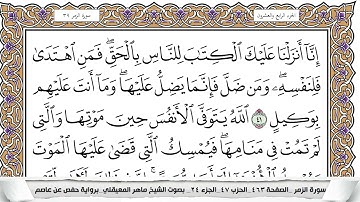 سورة الزمر ٣٩
الجزء الرابع والعشرون
إِنَّا أَنزَلْنَا عَلَيْكَ ٱلْكِتَٰبَ لِلنَّاسِ بِٱلْحَقِّ ۖ فَمَنِ ٱهْتَدَىٰ
فَلِنَفْسِهِۦ ۖ وَمَن ضَلَّ فَإِنَّمَا يَضِلُّ عَلَيْهَا ۖ وَمَآ أَنتَ عَلَيْهِم
بِوَكِيلٍ ٤١ ٱللَّهُ يَتَوَفَّى ٱلْأَنفُسَ حِينَ مَوْتِهَا وَٱلَّتِى
لَمْ تَمُتْ فِى مَنَامِهَا ۖ فَيُمْسِكُ ٱلَّتِى قَضَىٰ عَلَيْهَا ٱلْمَوْتَ
سورة الزمر _ الصفحة ٤٦٣ _ الحزب ٤٧ _ الجزء ٢٤ _ بصوت الشيخ ماهر المعيقلي _ برواية حفص عن عاصم